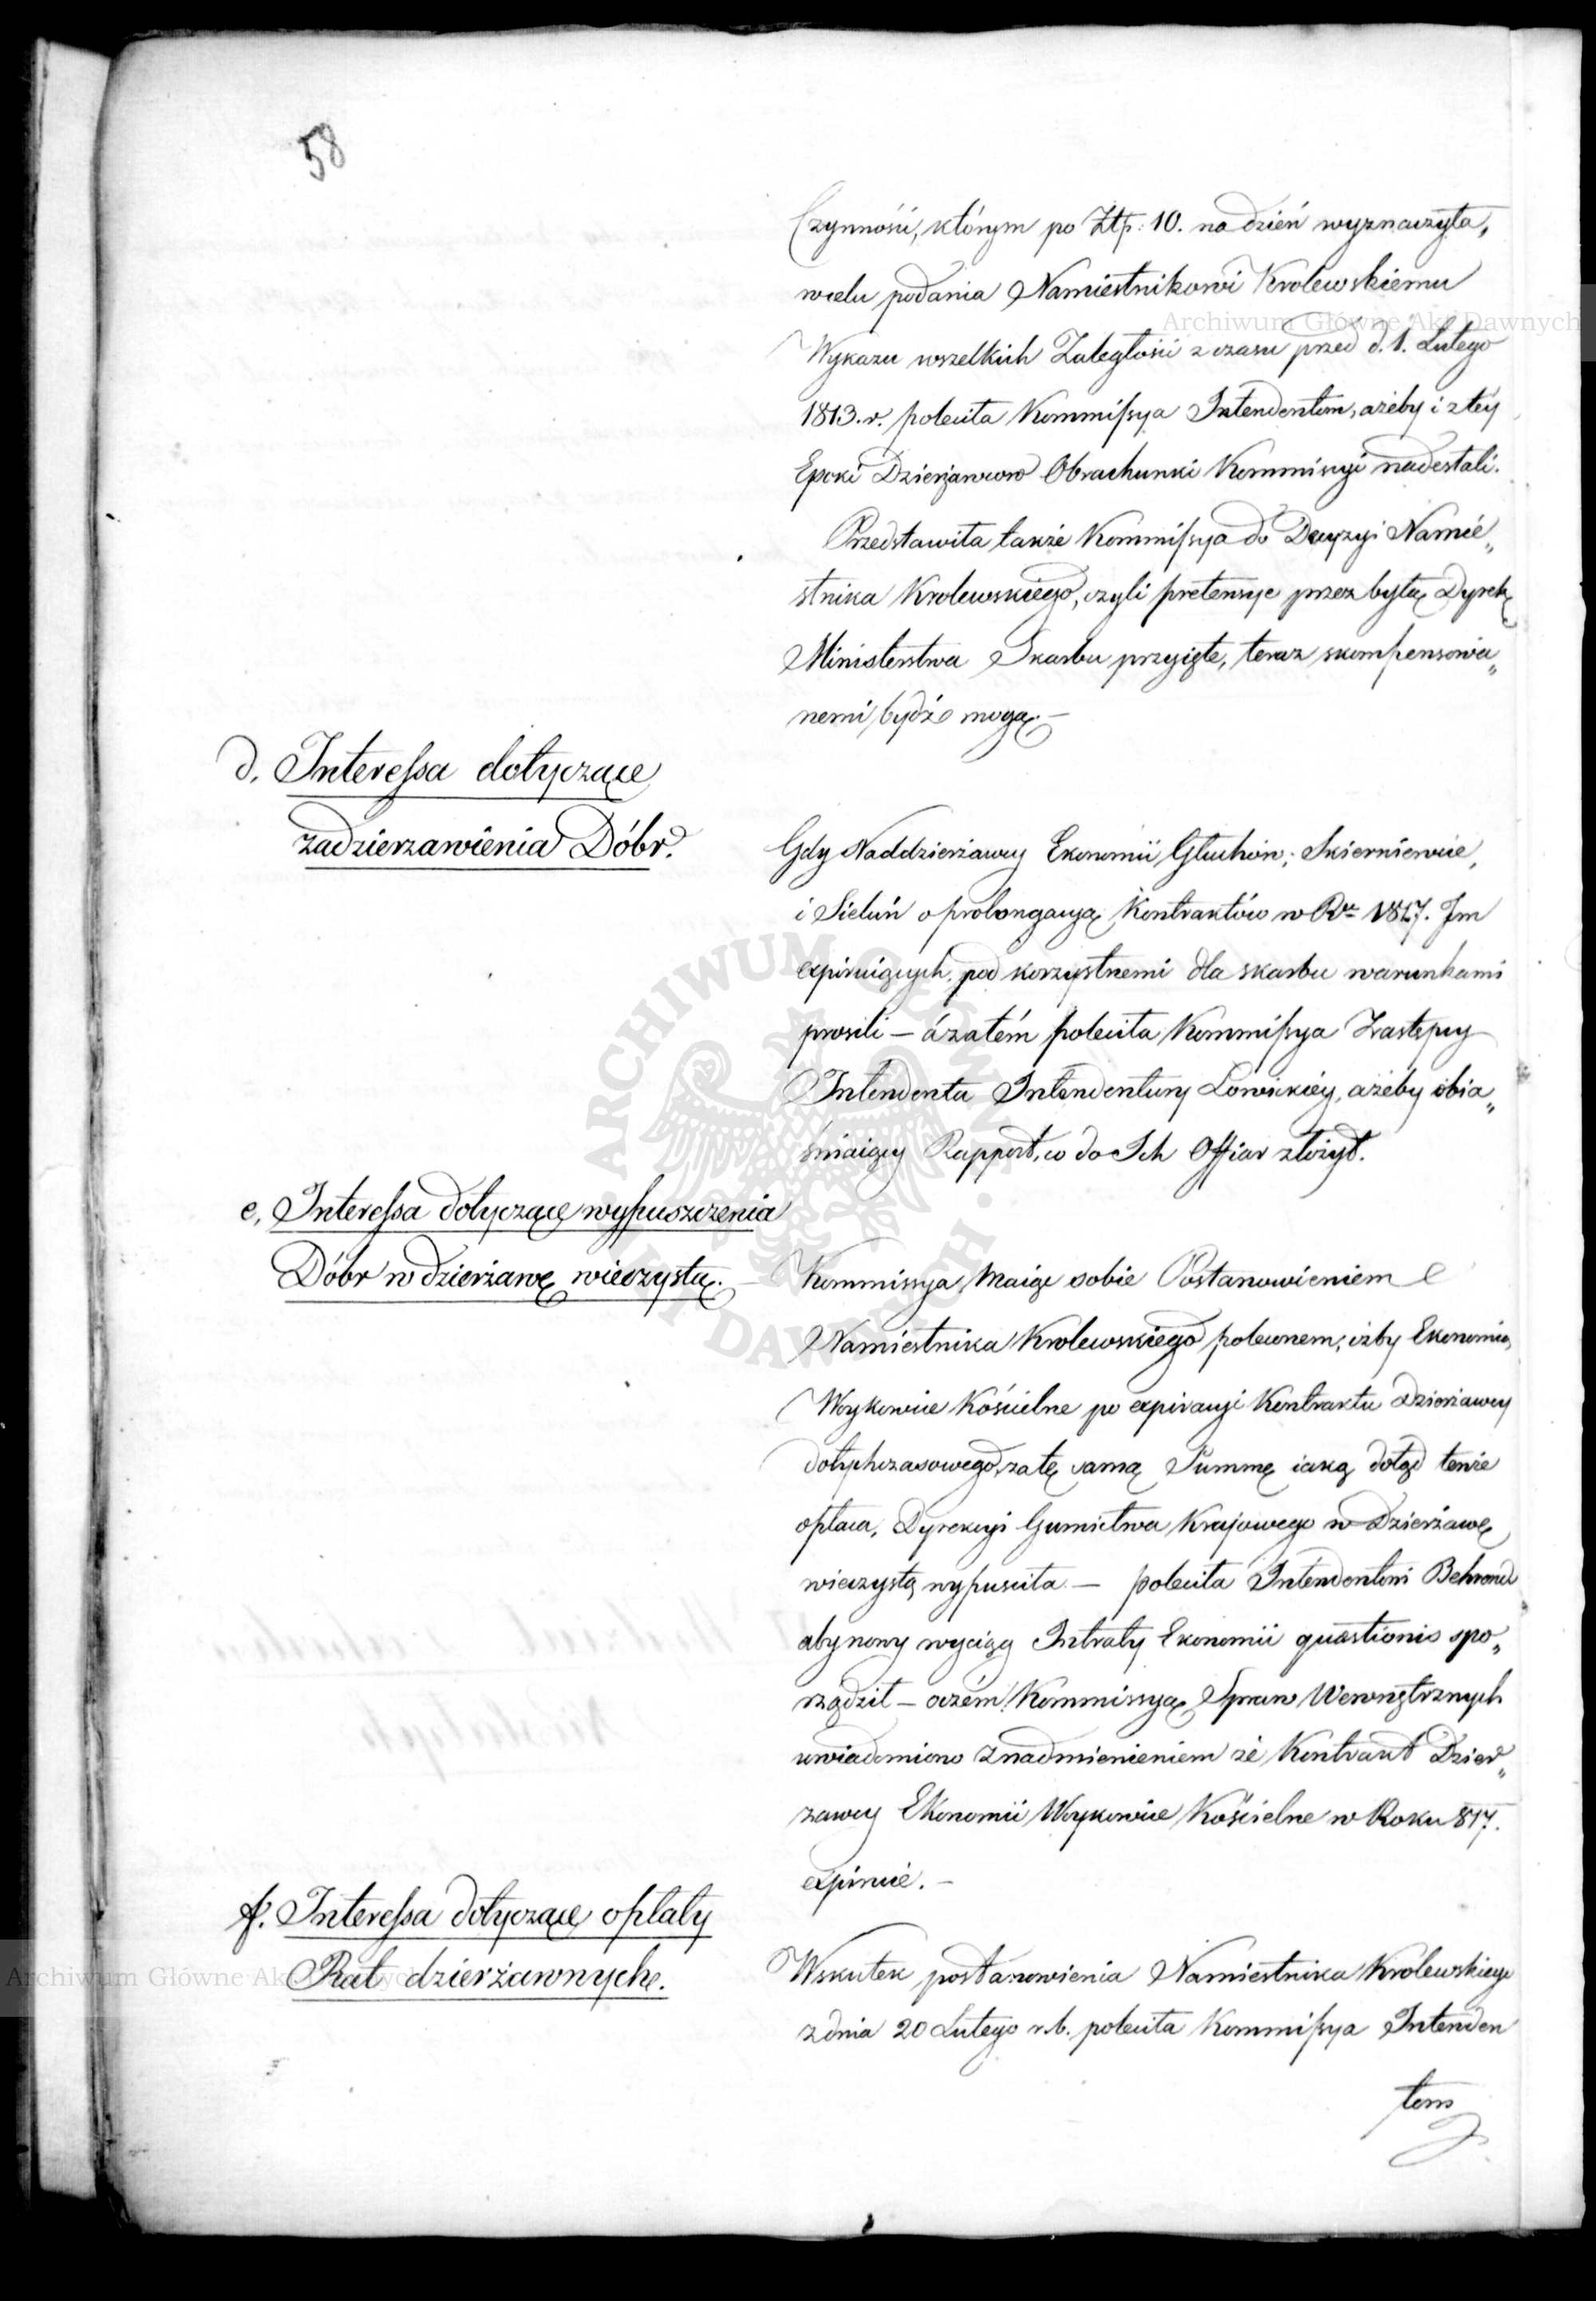 58
Czynności, którym po Złp: 10. na dzień wyznaczyła,
w celu podania Namiestnikowi Krolewskiemu
Wykazu wszelkich Zaległości z czasu przed d. 1. Lutego
1813. r. poleciła Kommissya Intendentom, ażeby i z tey
Epoki Dzierżawców Obrachunki Kommissyi nadesłali.
Przedstawiła także Kommissya do Decyzyi Namie„
stnika Krolewskiego, czyli pretensye przez byłą Dyrek
Ministerstwa Skarbu przyięte, teraz skompensowa„
nemi bydź mogą. —
d. Interessa dotyczące
zadzierzawienia Dóbr.
Gdy Naddzierżawcy Ekonomii Głuchów, Skierniewice,
i Sieluń o prolongacyą Kontraktów w Ru 1817. Im
expiruiących, pod korzystnemi dla skarbu warunkami
prosili — a zatém poleciła Kommissya Zastępcy
Intendenta Intendentury Łowickiey, ażeby obia„
śniaiący Rapport, co do Ich Offiar złożył.
e. Interessa dotyczące wypuszczenia
Dóbr w dzierżawę wieczystą. —
Kommissya Maiąc sobie Postanowieniem
Namiestnika Krolewskiego polecenem, iżby Ekonomią
Woykowice Kościelne po expiracyi Kontraktu Dzierżawcy
dotychczasowego, za tę samą Summę iaką dotąd tenże
opłaca, Dyrekcyi Gornictwa Krajowego w Dzierżawę
wieczystą wypuściła — poleciła Intendentowi Behrend
aby nowy wyciąg Intraty Ekonomii quaestionis spo„
rządził — oczém Kommissyą Spraw Wewnętrznych
uwiadomiono z nadmienieniem że Kontrakt Dzier„
zawcy Ekonomii Woykowice Kościelne w Roku 817.
expiruie. —
f. Interessa dotyczące opłaty
Rat dzierżawnych.
Wskutek postanowienia Namiestnika Królewskiego
z dnia 20 Lutego r. b. poleciła Kommissya Intenden
tom
Archiwum Główne Akt Dawnych
ARCHIWUM GŁÓWNE AKT DAWNYCH
Archiwum Główne Akt Dawnych